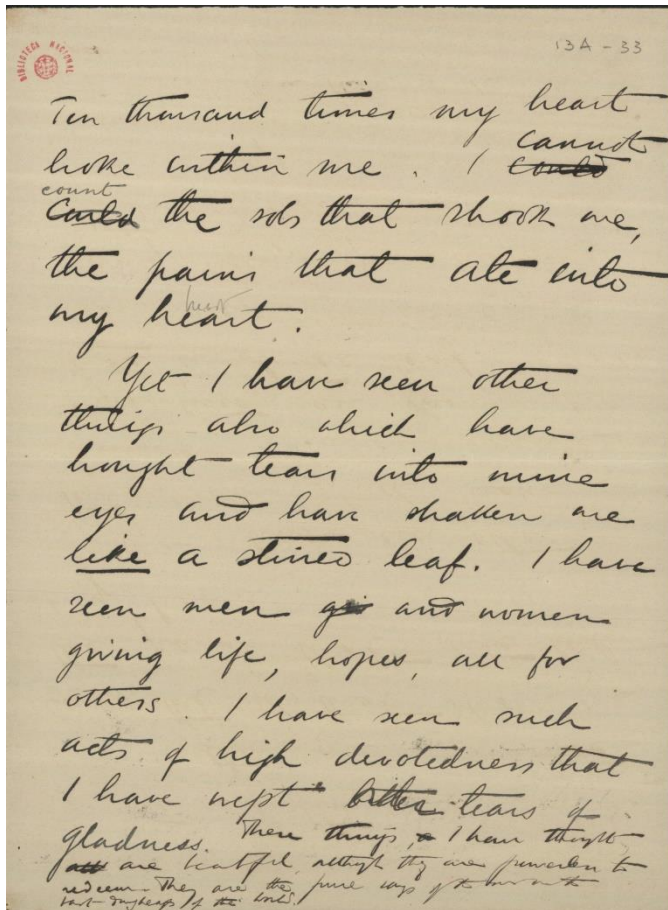 BIBLIOTECA NACIONAL
13A - 33
Ten thousand times my heart
broke within me. I could cannot
could count the sobs that shook me,
the pains that ate into
my heart.
Yet I have seen other
things also which have
brought tears into mine
eyes and have shaken me
like a stirred leaf. I have
seen men gi and women
giving life, hopes, all for
others. I have seen such
acts of high devotedness that
I have wept bitter tears of
gladness. These things, I have thought,
are beautiful, although they are powerless to
redeem. They are the pure rays of the sun on the
vast dungheaps of the world.